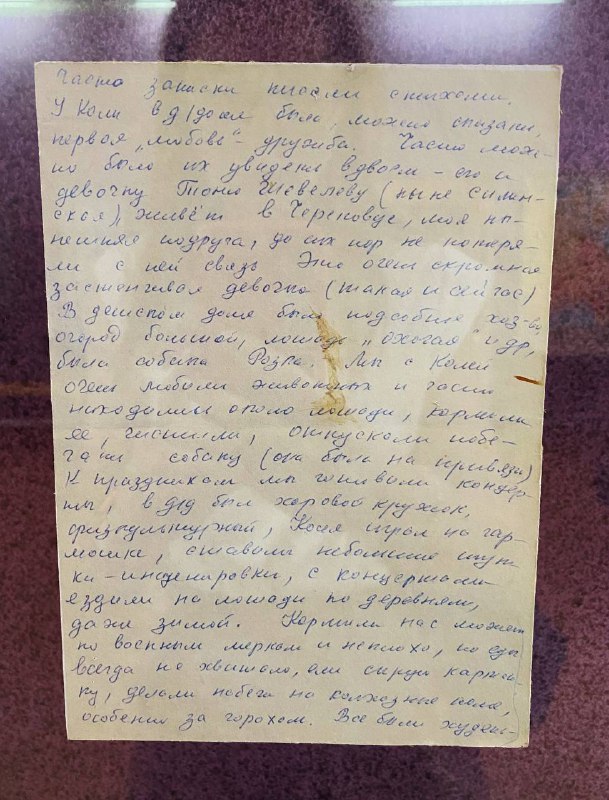 Часто записки писали стихами.
У Коли в д/доме была, можно сказать,
первая „любовь"- дружба. Часто мож-
но было их увидеть вдвоем – его и
девочку Тоню Шевелеву (ныне Силин-
ская), живёт в Череповце, моя ны-
нешняя подруга, до сих пор не потеря-
ли с ней связь. Это очень скромная
застенчивая девочка (такая и сейчас)
В детском доме было подсобное хоз-во,
огород большой, лошадь и др,
была собака Розка. Мы с Колей
очень любили животных и часто
находились около лошади, кормили
ее, чистили, отпускали побе-
гать собаку (она была на привязи)
К праздникам мы готовили концер-
ты, в д/д был хоровой кружок,
физкультурный, Коля играл на гар-
мошке, ставили небольшие шут-
ки-инсценировки, с концертами
ездили на лошади по деревням,
даже зимой. Кормили нас может
по военным меркам и неплохо, но еды
всегда не хватало, ели сырую картош-
ку, делали набеги на колхозные поля,
особенно за горохом. Все были худень-